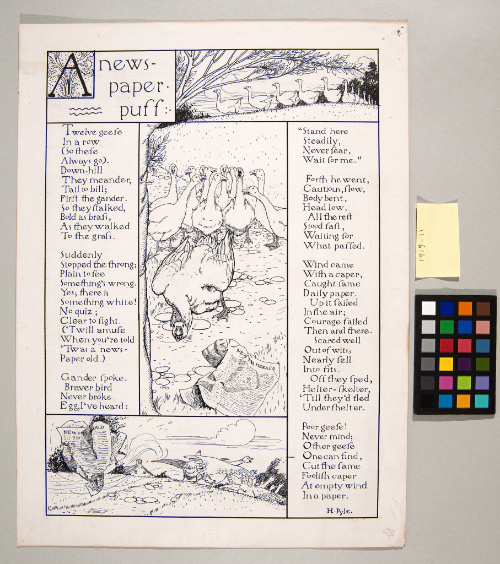 A news-
paper
puff:
Twelve geese
In a row
(So these
Always go).
Down-hill
They meander,
Tail to bill;
First the gander.
So they stalked,
Bold as brass,
As they walked
To the grass.
Suddenly
Stopped the throng;
Plain to see
Something's wrong.
Yes; there is
Something white!
No quiz;
Clear to sight.
('Twill amuse
When you're told
'Twas a news-
Paper old.)
Gander spoke.
Braver bird
Never broke
Egg, I've heard:
"Stand here
Steadily,
Never fear,
Wait for me."
Forth he went,
Cautious, slow,
Body bent,
Head low.
All the rest
Stood fast,
Waiting for
What passed.
Wind came
With a caper,
Caught same
Daily paper.
Up it sailed
In the air;
Courage failed
Then and there.
Scared well
Out of wits;
Nearly fell
Into fits.
Off they sped,
Helter-skelter,
'Till they'd fled
Under shelter.
Poor geese!
Never mind;
Other geese
One can find,
Cut the same
Foolish caper
At empty wind
In a paper.
H. Pyle.